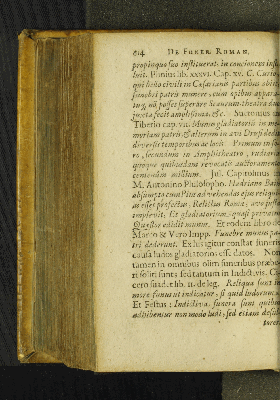 614 DE FUNER. ROMAN.
propinquo suo instituerat: in concionem
luit. Plinius lib. XXXVI. Cap. XV. C. Curio,
qui bello civili in Cæsarianis partibus obiit,
funebri patris munere, cum opibus appara-
tuque non posset superare Scaurum theatra duo
juxta fecit amplissima, &c. Suetonius in
Tiberio cap. VII. Munus gladiatorium in me-
moriam patris, & alterum in avi Drusi dedit,
diversis temporibus ac locis. Primum in fo-
ro, secundum in amphitheatro, rudiariis
quoque quibusdam revocatis auctoramento
centenum millium. Jul. Capitolinus in
M. Antonino Philosopho. Hadriano Baiis
absumpto cum Pius ad advehendas ejus reliquias
esset profectus, Relictus Romæ, avo justa
implevit: Et gladiatorium, quasi privatus
Quæstor edidit munus. Et eodem libro de
Marco & Vero Impp. Funebre munus pa-
tri dederunt. Ex his igitur constat funeris
causa ludos gladiatorios esse datos. Non
tamen in omnibus olim funeribus præbe-
ri soliti sunt: sed tantum in Indictivis. Ci-
cero suadet lib. II. de leg. Reliqua sunt in
more funus ut indicatur, si quid ludorum
Et Festus: Indictiva, funera sunt quibus
adhibentur non modo ludi, sed etiam desul-
tores